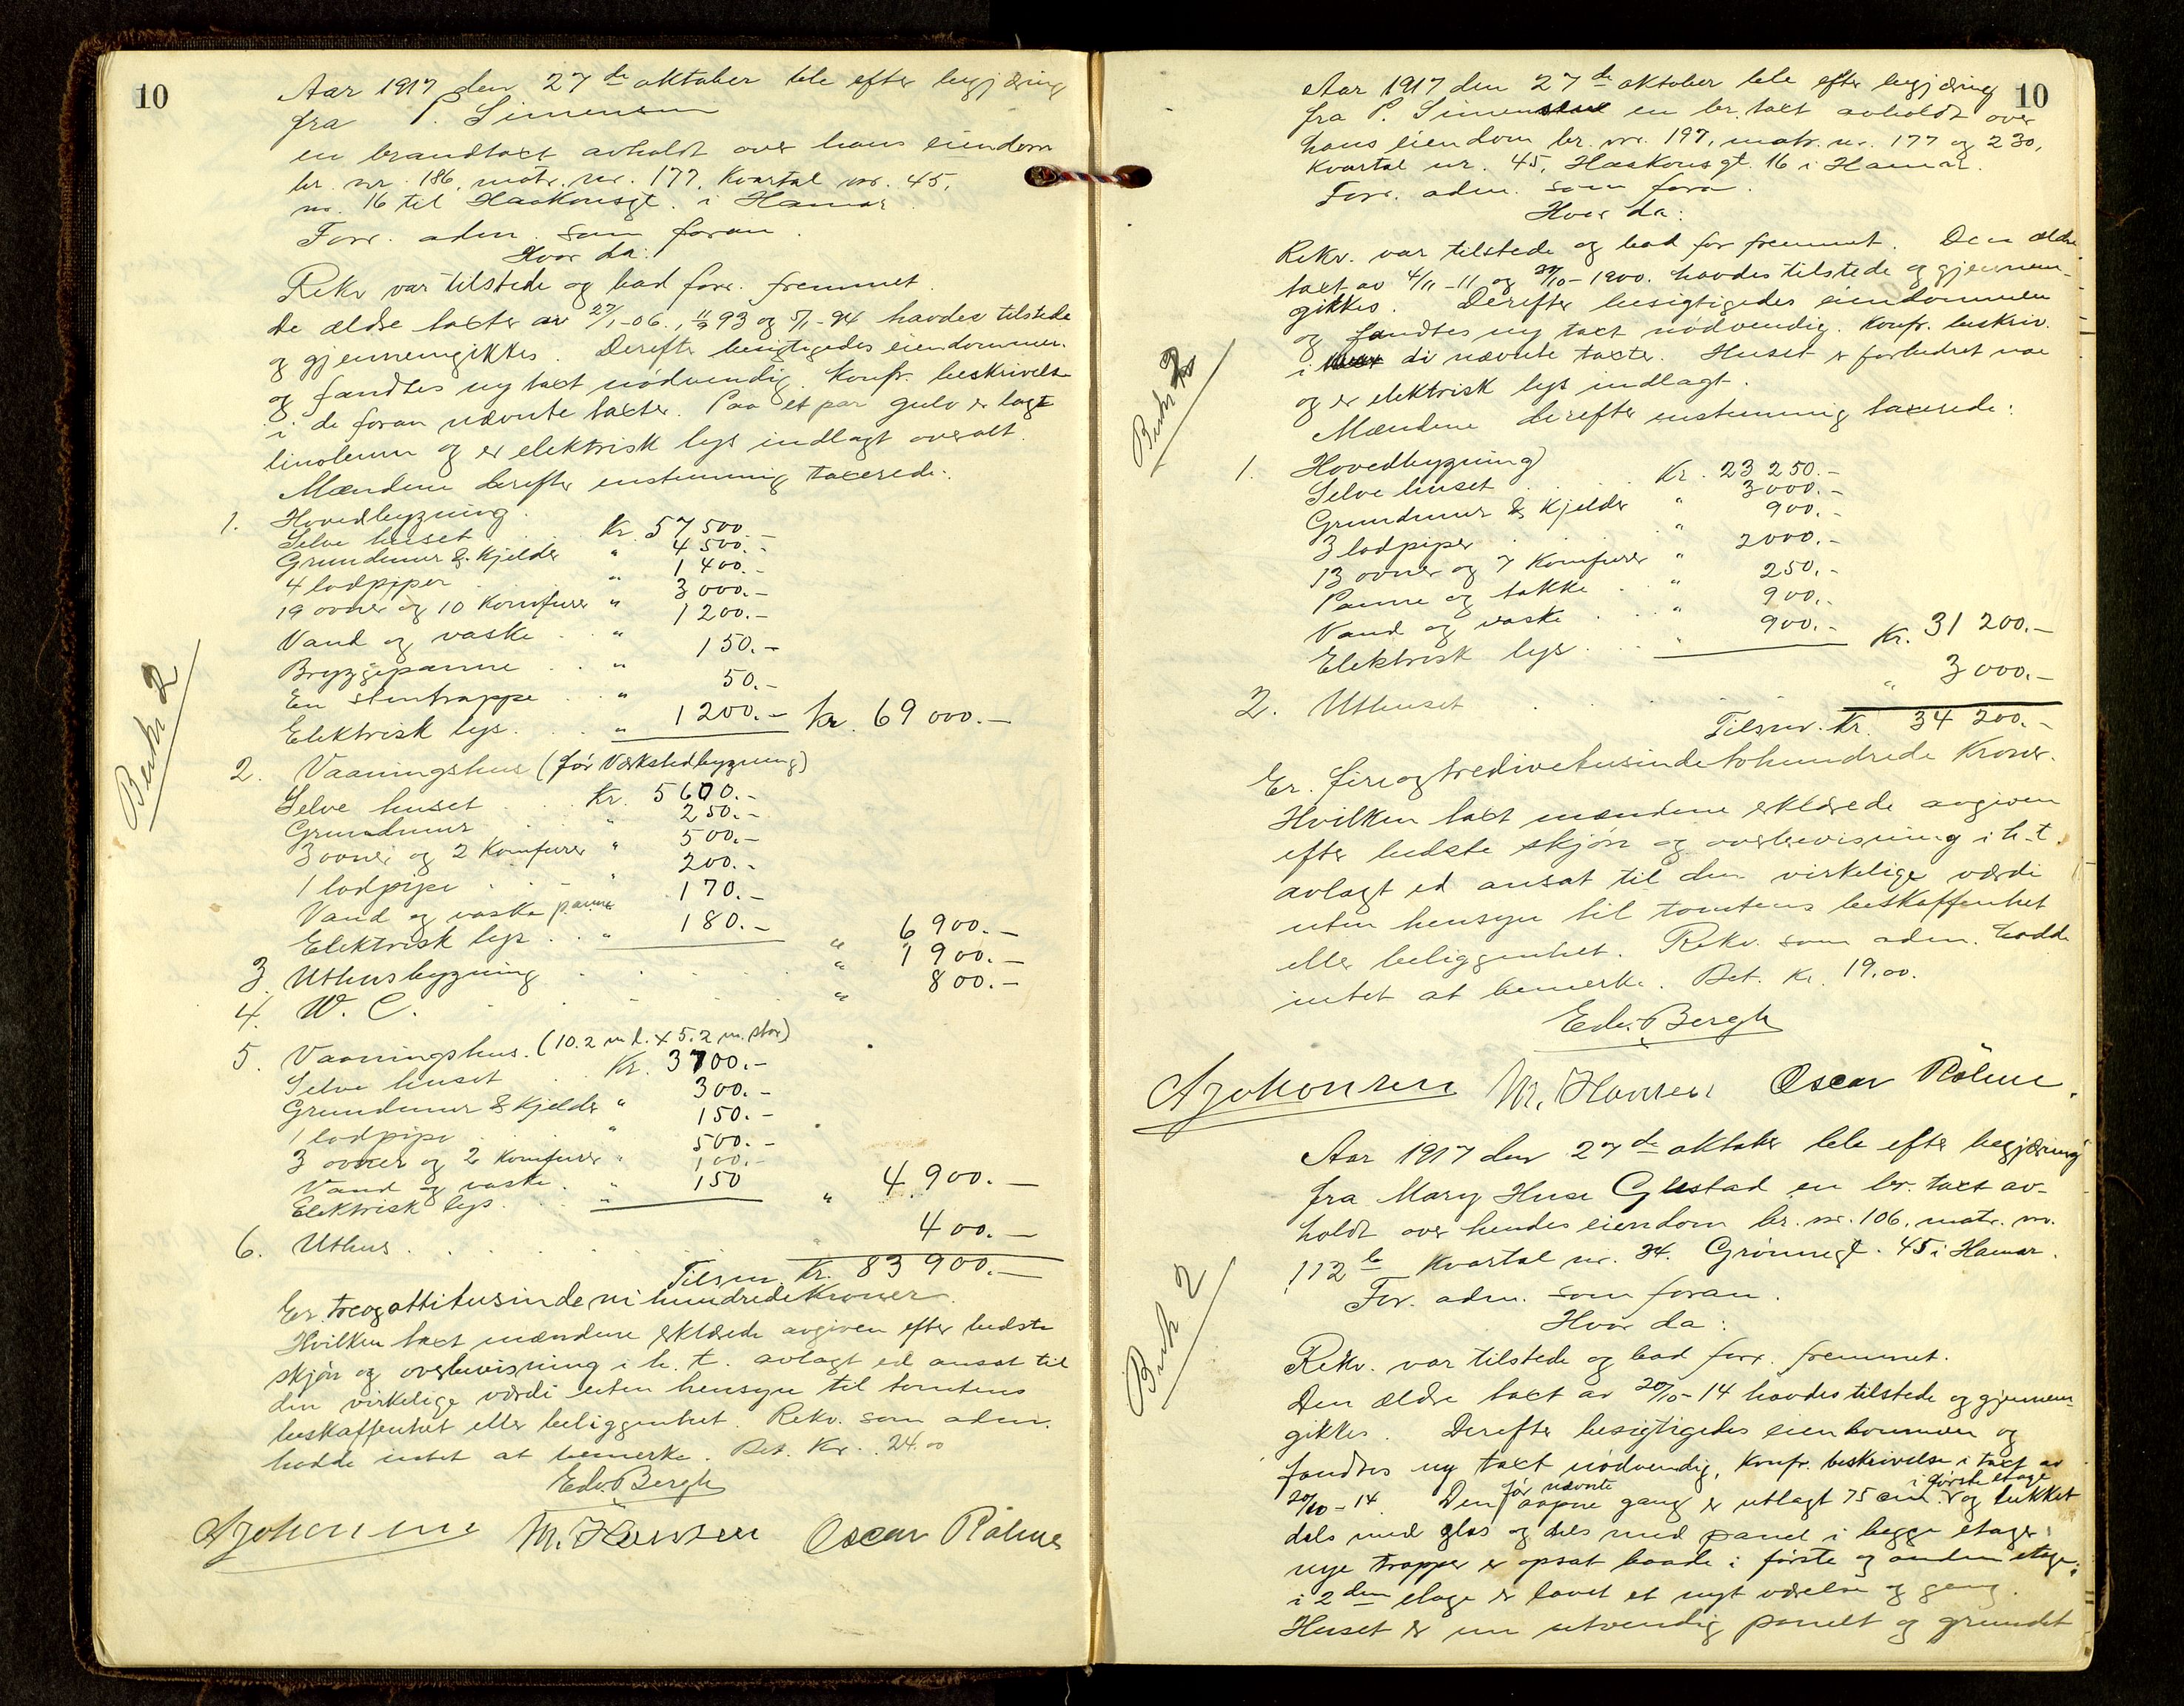 10
Aar 1917 den 27de oktober ble efter begjæring
fra P. Simensen
en brandtaxt avholdt over hans eiendom
br. nr. 186, matr. nr. 177, Kvartal nr. 45,
nr. 16 til Haakonsgt. i Hamar.
Forr. adm. som foran.
Hvor da:
Rekv var tilstede og bad forr. fremmet.
De ældre taxter av 27/1-06., 11/9 93 og 5/1-94 havdes tilstede
og gjennemgikkes. Derefter besigtigedes eiendommen
og fandtes ny taxt nödvendig. Konfr. beskrivelse
i de foran nævnte taxter. Paa et par gulv er lagt
linoleum og er elektrisk lys indlagt overalt.
Mændene derefter enstemmig taxerede:
1. Hovedbygning.
Selve huset . . Kr. 57 500.-
Grundmur & Kjelder " 4 500.-
4 lodpiper . " 1 400.-
19 ovner og 10 Komfurer " 3 000.-
Vand og vaske . . " 1 200.-
Bryggepanne . . " 150.-
En stentrappe . . " 50.-
Elektrisk lys. . . " 1 200.- Kr. 69 000.-
2. Vaaningshus (för Værkstedbygning)
Selve huset . . Kr. 5 600.-
Grundmur . . " 250.-
3 ovner og 2 Komfurer " 500.-
1 lodpipe . . " 200.-
Vand og vaske panne . 170.-
Elektrisk lys . . " 180.- " 6 900.-
3. Uthusbygning . . . . " 1 900.-
4. W. C. . . . . " 800.-
5. Vaaningshus. (10.2 m l. x 5.2 m. stor)
Selve huset . Kr. 3700.-
Grundmur & Kjelder " 300.-
1 lodpipe . " 150.-
3 ovner og 2 Komfurer " 500.-
Vand og vaske . " 100.-
Elektrisk lys. . . " 150 " 4 900.-
6. Uthus . . . . . 400.-
Tilsm. Kr. 83 900.-
Er. treogottitusindenihundrede Kroner.
Hvilken taxt mændene erklærede avgiven efter bedste
skjøn og overbevisning i h. t. avlagt ed ansat til
den virkelige værdi uten hensyn til tomtens
beskaffenhet eller beliggenhet. Rekv. som adm.
hadde intet at bemerke. Bet. Kr. 24.00
Edv. Bergh
A Johansen M. Hansen Oscar Röhme
10
Aar 1917 den 27de oktober ble efter begjæring
fra P. Simensen en br. taxt avholdt over
hans eiendom br. nr. 197, matr. nr. 177 og 230,
Kvartal nr. 45, Haakonsgt. 16 i Hamar.
Forr. adm. som foran.
Hvor da:
Rekv. var tilstede og bad forr fremmet. Den ældre
taxt av 4/11-11 og /10-1900. havdes tilstede og gjennem-
gikkes. Derefter besigtigedes eiendommen
og fandtes ny taxt nödvendig. Konfr. beskriv.
i de nævnte taxter. Huset er forbedret noe
og er elektrisk lys indlagt.
Mændene derefter enstemmig taxerede:
1. Hovedbygning
Selve huset . . . Kr. 23 250.-
Grundmur & Kjelder " 3 000.-
3 lodpiper . . " 900.-
13 ovner og 7 Komfurer " 2000.-
Panne og takke . " 250.-
Vand og vaske . . " 900.-
Elektrisk lys. . . " 900.- Kr. 31 200.-
2. Uthuset . . . . " 3 000.-
Tilsm. Kr. 34 200.-
Er. fireogtredivetusindetohundrede Kroner.
Hvilken taxt mændene erklærede avgiven
efter bedste skjøn og overbevisning i h. t.
avlagt ed ansat til den virkelige værdi
uten hensyn til tomtens beskaffenhet
eller beliggenhet. Rekv. som adm. hadde
intet at bemerke. Bet. Kr. 19.00.
Edv. Bergh
A Johansen M. Hansen Oscar Röhme.
Aar 1917 den 27de oktober ble efter begjæring
fra Mary Huse Gustad en br. taxt av-
holdt over hendes eiendom br. nr. 106, matr. nr.
112 b Kvartal nr. 34. Grønnegt. 45 i Hamar.
For. adm. som foran.
Hvor da:
Rekv. var tilstede og bad forr. fremmet.
Den ældre taxt av 20/10-14 havdes tilstede og gjennem-
gikkes. Derefter besigtigedes eiendommen og
fandtes ny taxt nödvendig, Konfr. beskrivelse i taxt av
20/10-14. Den för nævnte aapne gang er utlagt 75 cm. i første etage og lukket
dels med glas og dels med panel i begge etager;
nye trapper er opsat baade i første og anden etage;
i 2den etage er lavet et nyt værelse og gang.
Huset er nu utvendig panelt og grundet